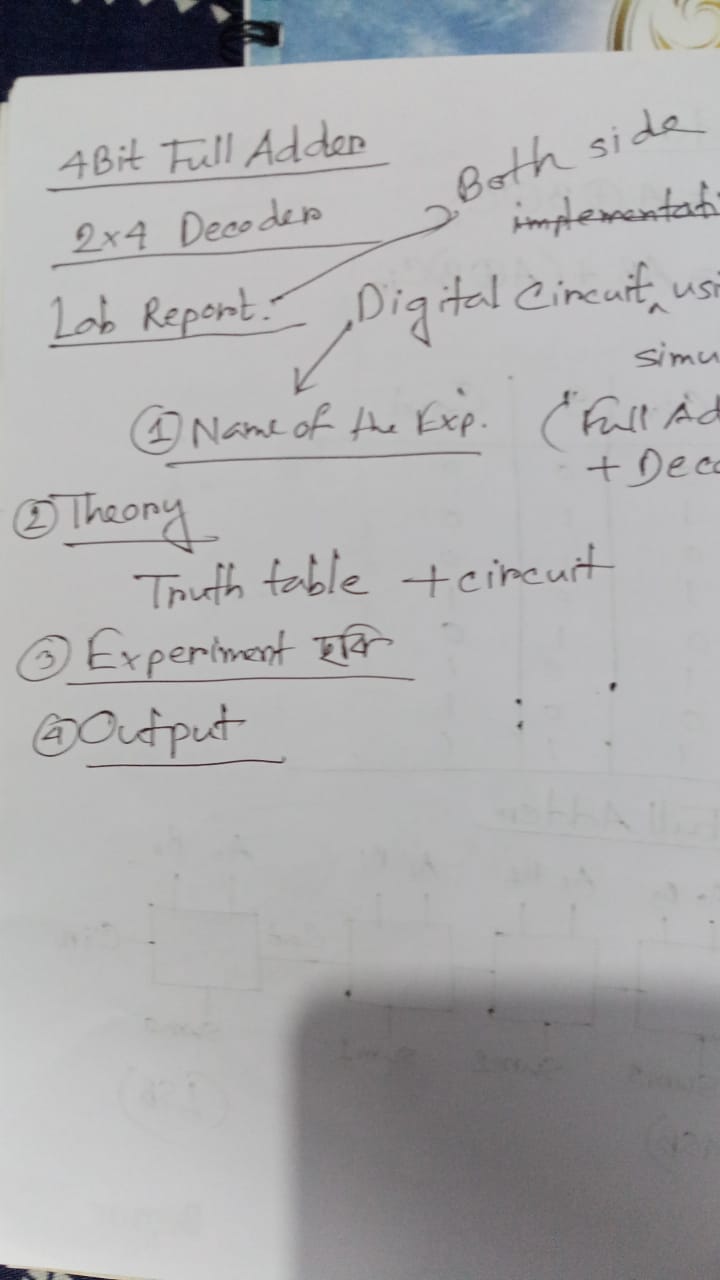 4Bit Full Adder
2x4 Decoder
Lab Report:
Both side
implementati
Digital Circuit, usi
simu
① Name of the Exp. ("Full Ad
+ Deco
② Theory
Truth table + circuit
③ Experiment ছবি
④ Output